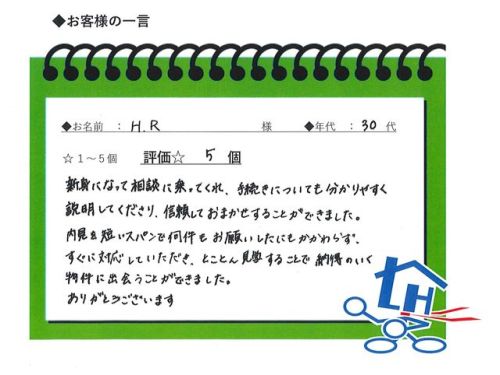 ◆お客様の一言
◆お名前 : H.R 様 ◆年代 : 30 代
☆1～5個 評価☆ 5 個
親身になって相談に乗ってくれ、手続きについても分かりやすく
説明してくださり、信頼しておまかせすることができました。
内見を短いスパンで何件もお願いしたにもかかわらず、
すぐに対応していただき、とことん見学することで納得のいく
物件に出会うことができました。
ありがとうございます
LH